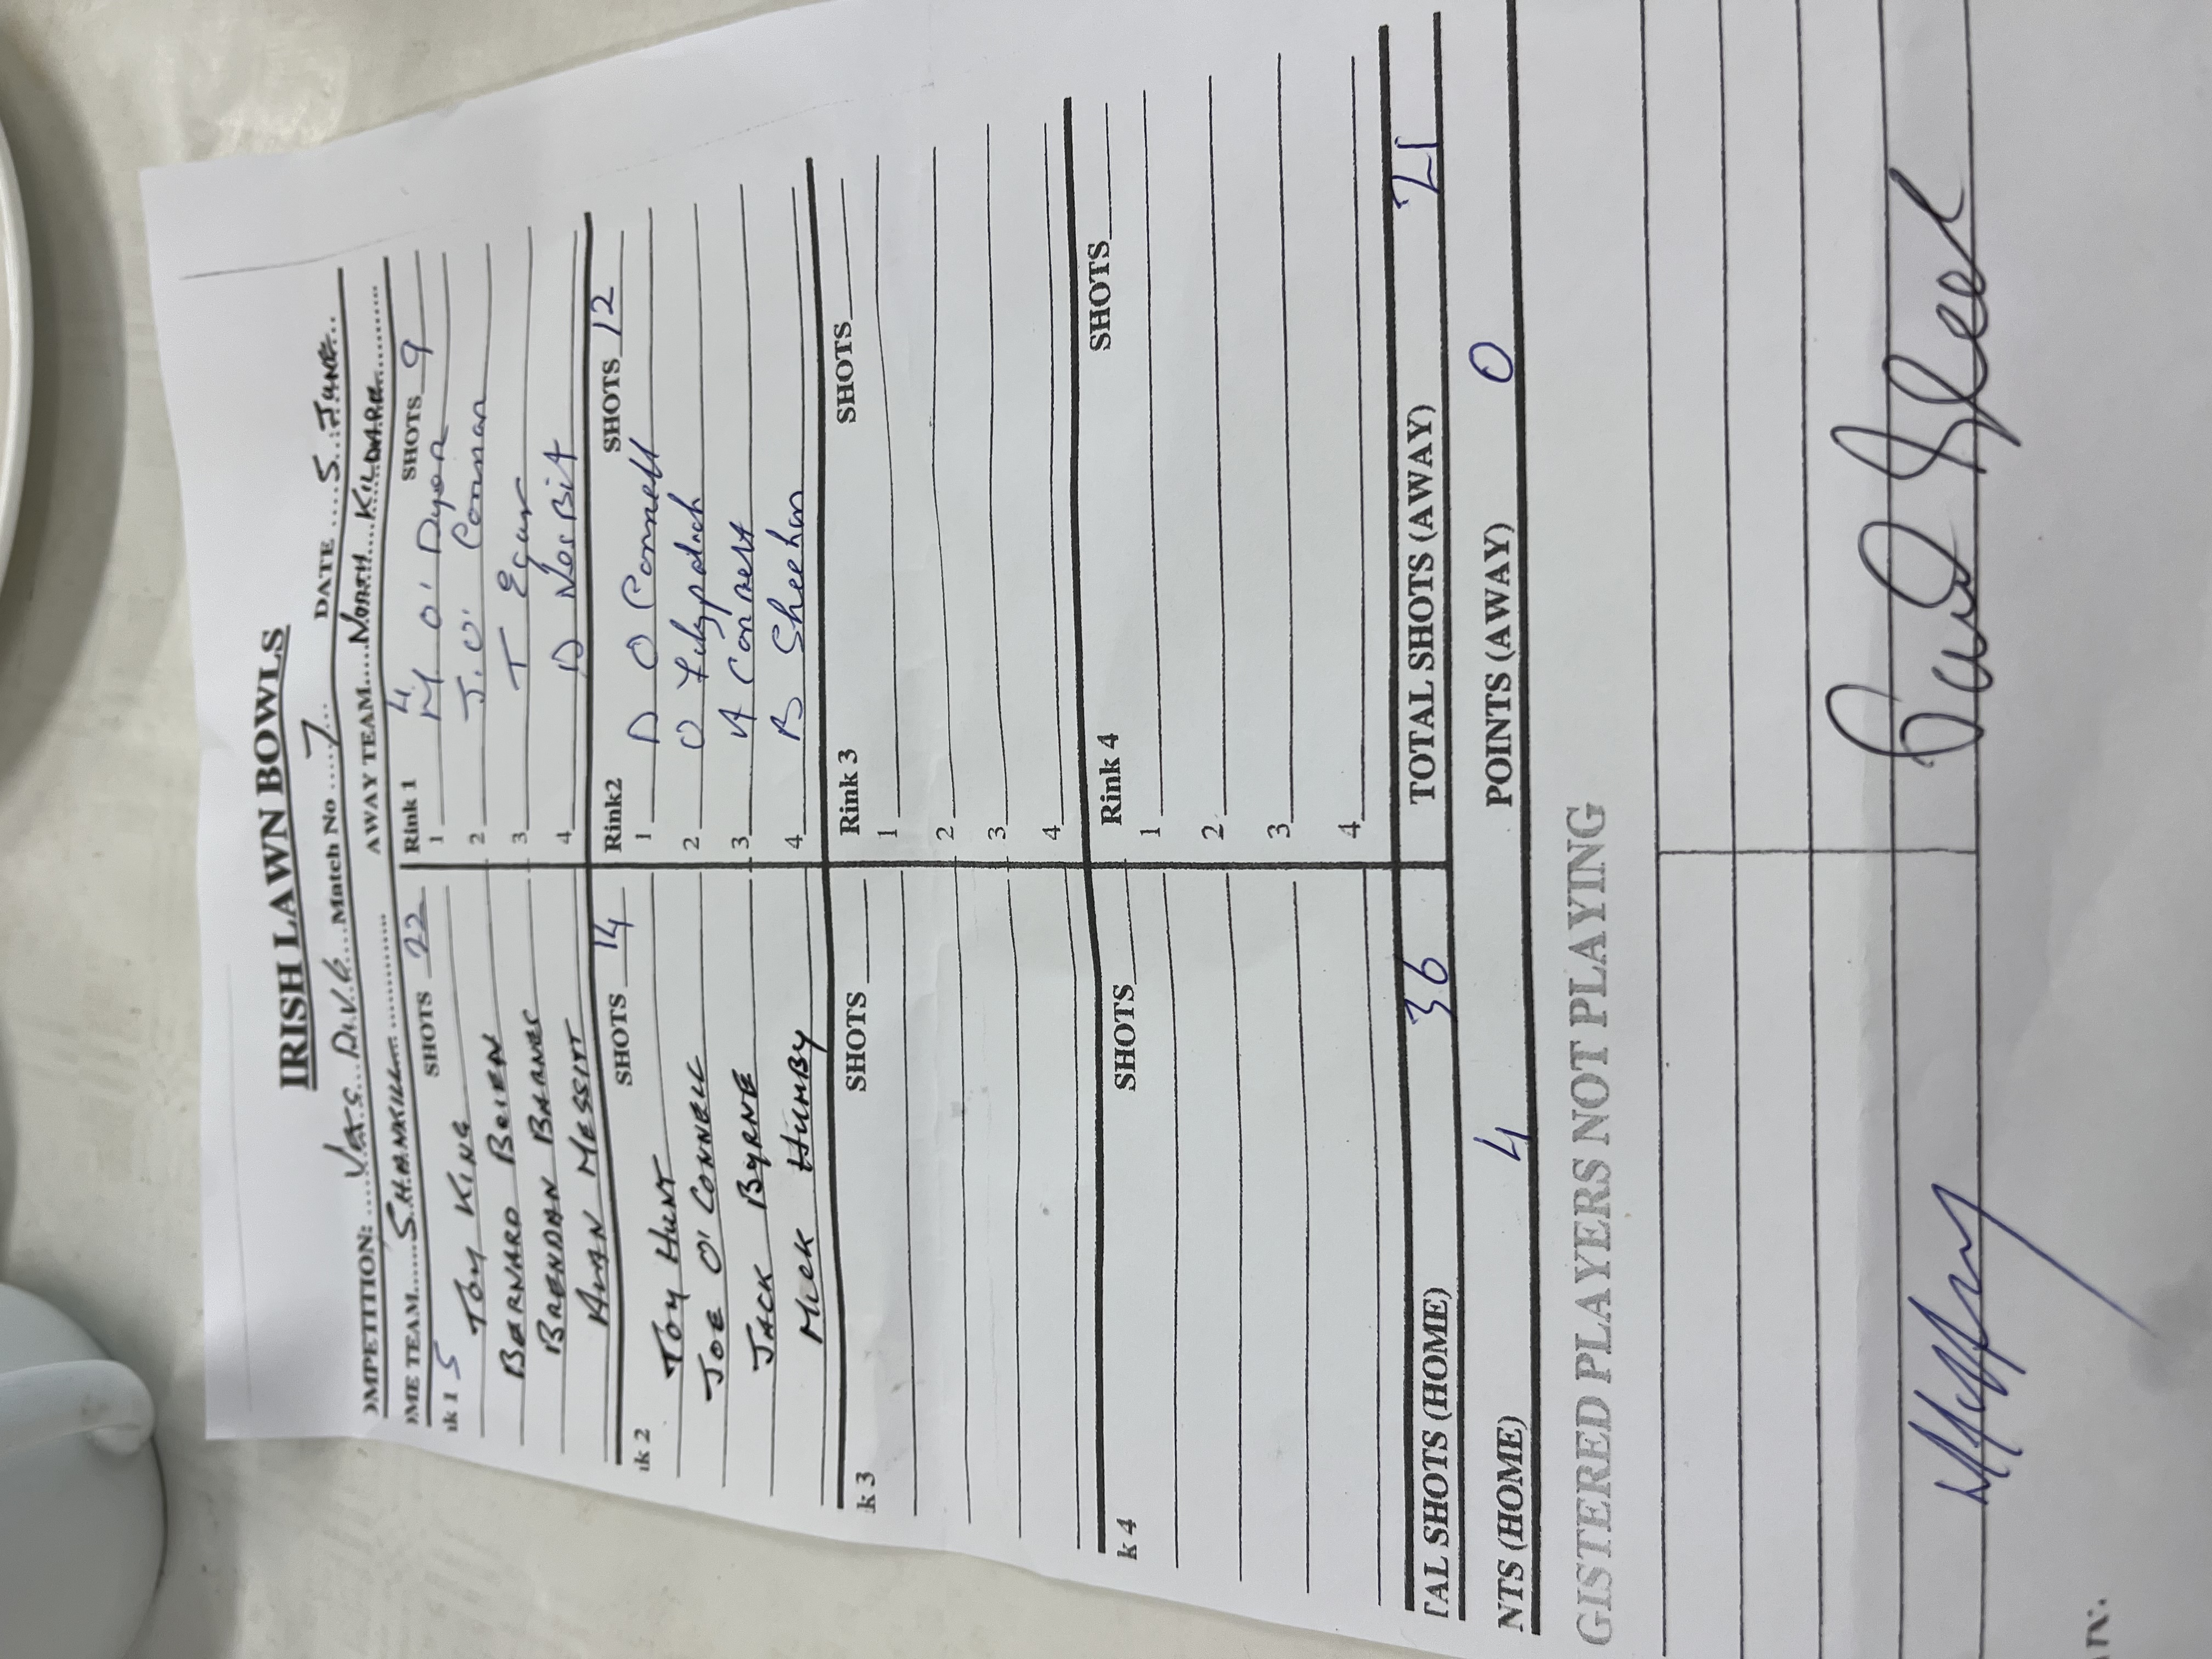 IRISH LAWN BOWLS
OMPETITION: ....V.A.S. DIV. 6....Match No ....7... DATE ....5...JUNE...
OME TEAM......SHANKILL............ AWAY TEAM....NORTH....KILDARE..........
nk 1 5 SHOTS 22 Rink 1 4 SHOTS 9
TOM KING 1 M O'Dyer
BERNARD BRIEN 2 J. O' Connor
BRENDAN 3 T Egan
ALAN MESSITT 4 D NesBit
nk 2 SHOTS 14 Rink2 SHOTS 12
TOM HUNT 1 D O Connell
JOE O'CONNELL 2 O
JACK BYRNE 3 A
MICK HUMBY 4 B Sheehan
k 3 SHOTS Rink 3 SHOTS
1
2
3
4
k 4 SHOTS Rink 4 SHOTS
1
2
3
4
TAL SHOTS (HOME) 36 TOTAL SHOTS (AWAY) 21
NTS (HOME) 4 POINTS (AWAY) 0
GISTERED PLAYERS NOT PLAYING
Paul